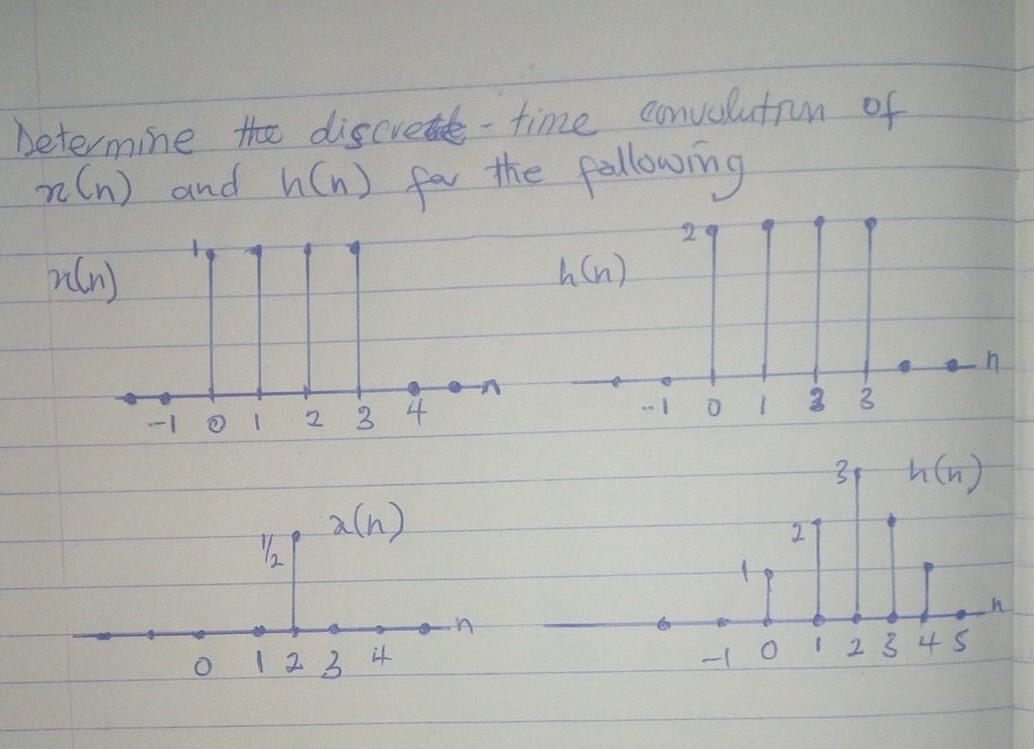 Determine the discrete - time convolution of
x(n) and h(n) for the following
x(n) 1
-1 0 1 2 3 4 n
h(n) 2
-1 0 1 2 3 n
1/2 x(n)
0 1 2 3 4 n
1 2 3 h(n)
-1 0 1 2 3 4 5 n